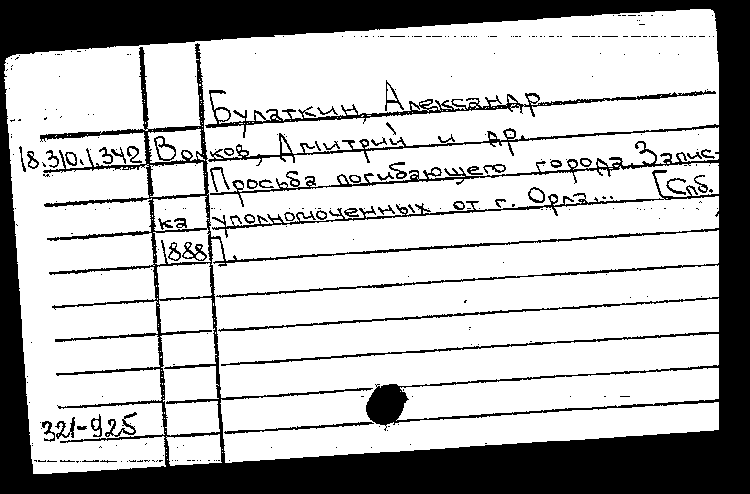 Булаткин, Александр
18.310.1.342 Волков, Дмитрий и др.
Просьба погибающего города. Запис-
ка уполномоченных от г. Орла... [Спб.
1888].
321-925